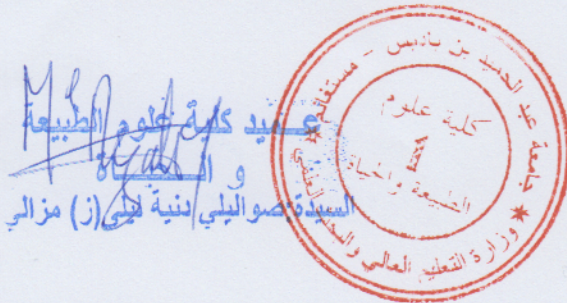 عميد كلية علوم الطبيعة
و الحياة
السيدة صواليلي دنية ليلى (ز) مزالي
جامعة عبد الحميد بن باديس - مستغانم
وزارة التعليم العالي والبحث العلمي
كلية علوم
1
الطبيعة والحياة